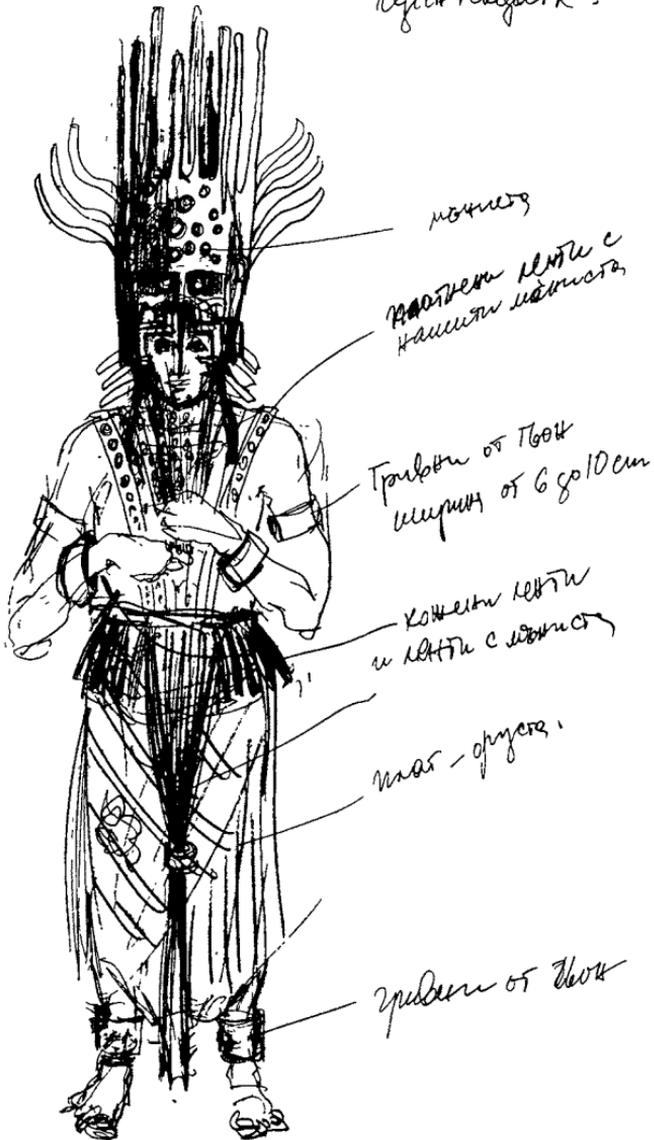 мъниста
платнени ленти с
нашити мъниста
Гривни от Пьон
ширина от 6 до 10 cm
кожени ленти
и ленти с мъниста
плат - фруста.
гривни от Пьон